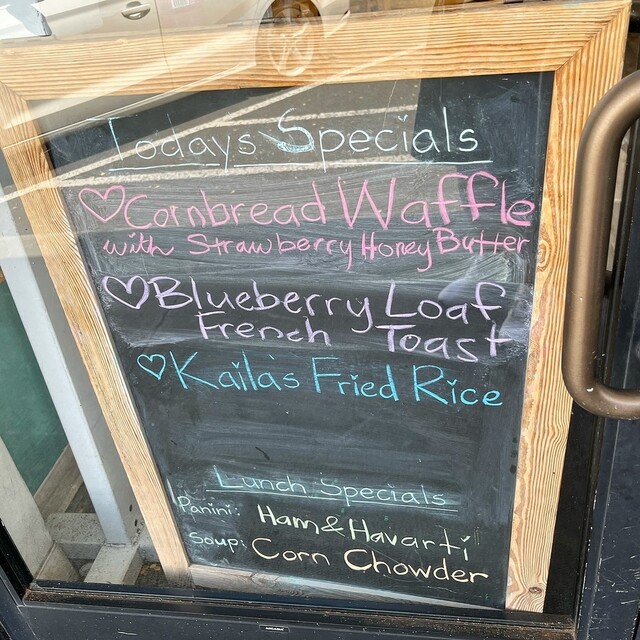 Todays Specials
♡Cornbread Waffle
with Strawberry Honey Butter
♡Blueberry Loaf
French Toast
♡Kaila's Fried Rice
Lunch Specials
Panini: Ham & Havarti
Soup: Corn Chowder